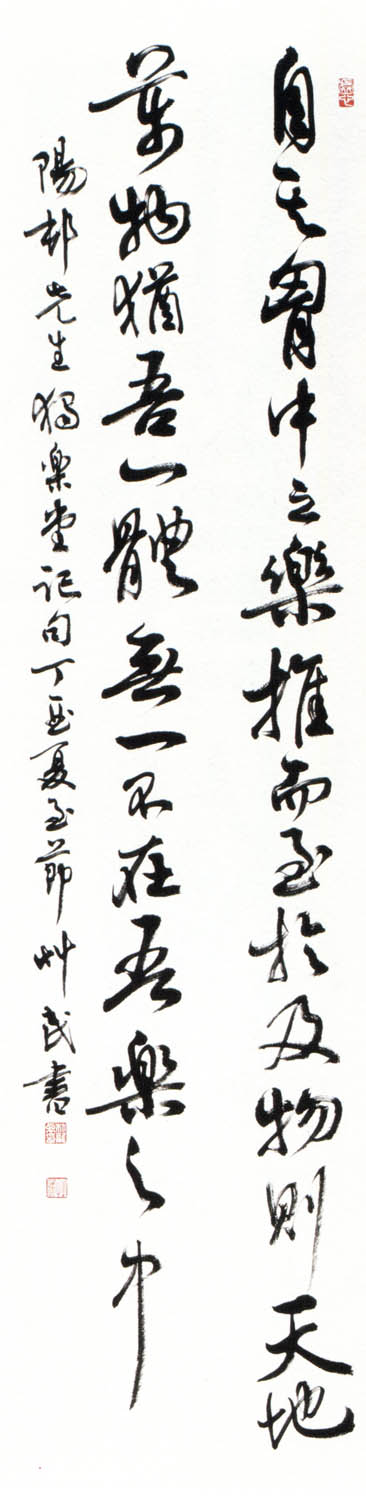 自其胷中之樂推而至於及物則天地
萬物猶吾一體無一不在吾樂之中
陽邨先生獨樂堂記句丁亞夏至節艸民書